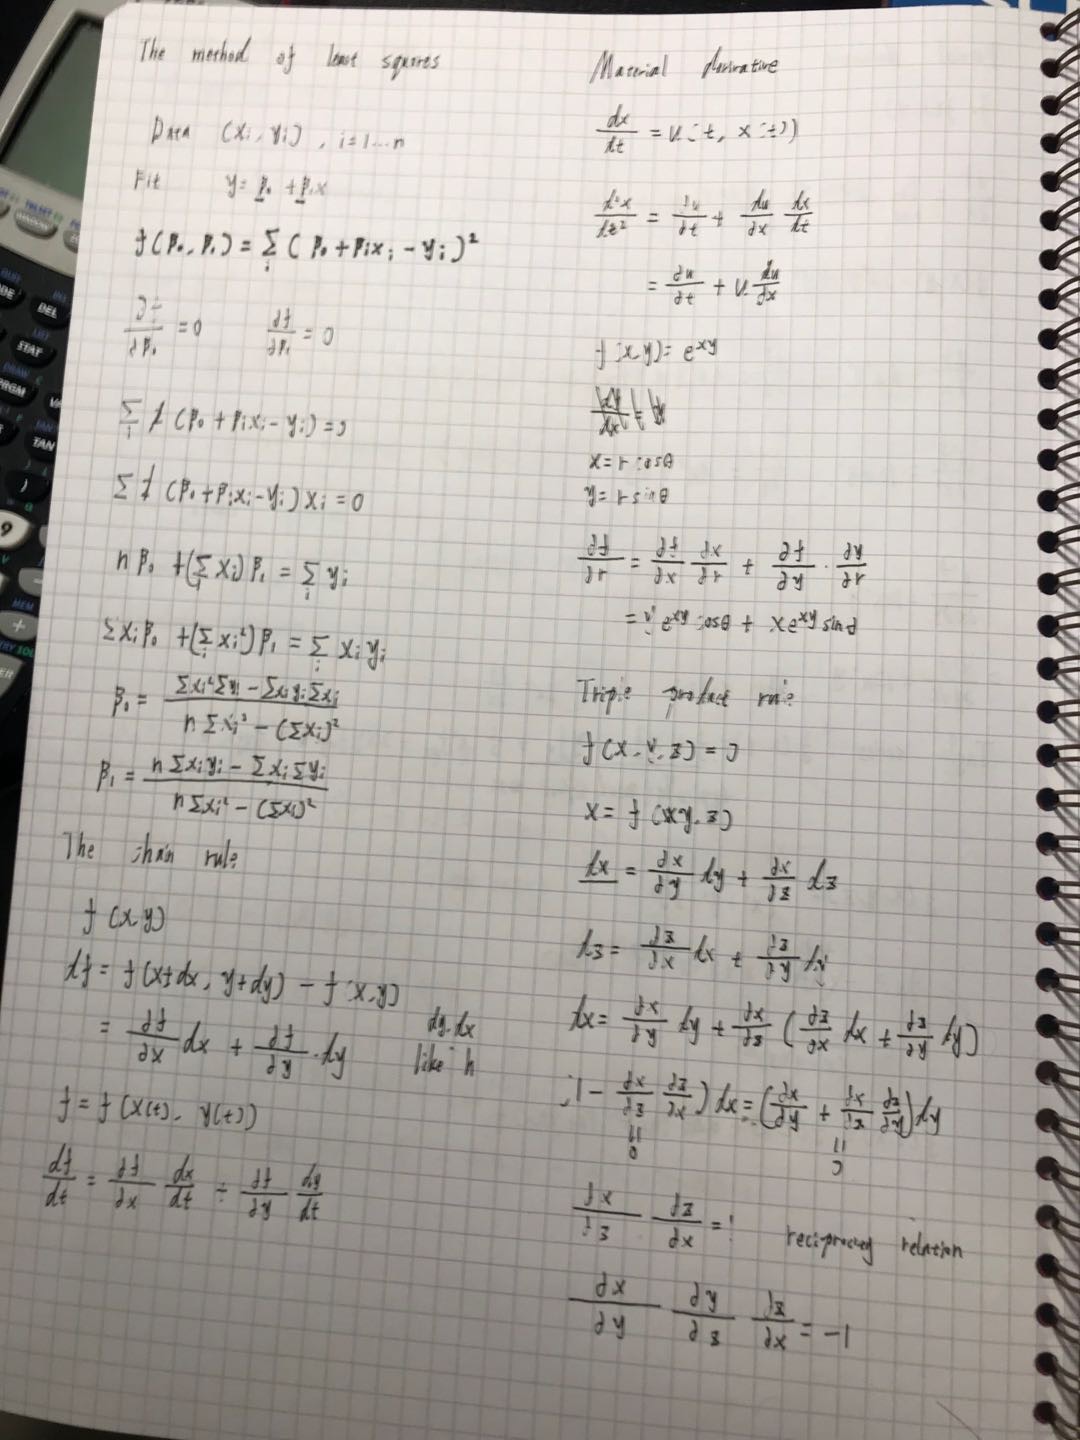 The method of least squares
Data (xi, yi), i=1...n
Fit y= β0 + β1x
f(β0, β1) = Σi (β0 + β1xi - yi)²
∂f/∂β0 = 0 ∂f/∂β1 = 0
Σi 2 (β0 + β1xi - yi) = 0
Σ 2 (β0 + β1xi - yi) xi = 0
nβ0 + (Σi xi) β1 = Σi yi
Σxi β0 + (Σi xi²) β1 = Σi xi yi
β0 = (Σxi² Σyi - Σxiyi Σxi) / (n Σxi² - (Σxi)²)
β1 = (n Σxiyi - Σxi Σyi) / (n Σxi² - (Σxi)²)
The chain rule
f(x,y)
df = f(x+dx, y+dy) - f(x,y)
= ∂f/∂x dx + ∂f/∂y · dy
dy, dx
like h
f = f(x(t), y(t))
df/dt = ∂f/∂x dx/dt + ∂f/∂y dy/dt
Material derivative
dx/dt = u(t, x(t))
d²x/dt² = ∂u/∂t + ∂u/∂x dx/dt
= ∂u/∂t + u ∂u/∂x
f(x,y) = e^xy
x = r cosθ
y = r sinθ
∂f/∂r = ∂f/∂x ∂x/∂r + ∂f/∂y · ∂y/∂r
= y e^xy cosθ + x e^xy sinθ
Triple product rule
f(x, y, z) = 0
x = f(y, z)
dx = ∂x/∂y dy + ∂x/∂z dz
dz = ∂z/∂x dx + ∂z/∂y dy
dx = ∂x/∂y dy + ∂x/∂z (∂z/∂x dx + ∂z/∂y dy)
(1 - ∂x/∂z ∂z/∂x) dx = (∂x/∂y + ∂x/∂z ∂z/∂y) dy
= 0 = 0
∂x/∂z ∂z/∂x = 1 reciprocey relation
∂x/∂y ∂y/∂z ∂z/∂x = -1
WINDOW
DEL
STAT
PRGM
TAN
)
9
MEM
+